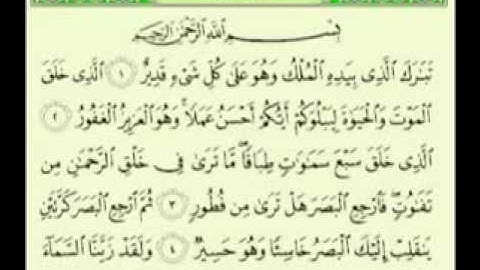 بِسْمِ ٱللَّهِ ٱلرَّحْمَٰنِ ٱلرَّحِيمِ
تَبَٰرَكَ ٱلَّذِى بِيَدِهِ ٱلْمُلْكُ وَهُوَ عَلَىٰ كُلِّ شَىْءٍ قَدِيرٌ ١ ٱلَّذِى خَلَقَ
ٱلْمَوْتَ وَٱلْحَيَوٰةَ لِيَبْلُوَكُمْ أَيُّكُمْ أَحْسَنُ عَمَلًا ۚ وَهُوَ ٱلْعَزِيزُ ٱلْغَفُورُ ٢
ٱلَّذِى خَلَقَ سَبْعَ سَمَٰوَٰتٍ طِبَاقًا ۖ مَّا تَرَىٰ فِى خَلْقِ ٱلرَّحْمَٰنِ مِن
تَفَٰوُتٍ ۖ فَٱرْجِعِ ٱلْبَصَرَ هَلْ تَرَىٰ مِن فُطُورٍ ٣ ثُمَّ ٱرْجِعِ ٱلْبَصَرَ كَرَّتَيْنِ
يَنقَلِبْ إِلَيْكَ ٱلْبَصَرُ خَاسِئًا وَهُوَ حَسِيرٌ ٤ وَلَقَدْ زَيَّنَّا ٱلسَّمَآءَ